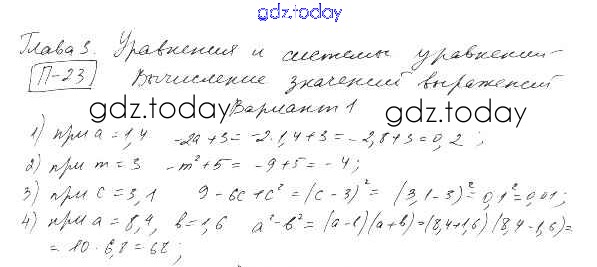 gdz.today
Глава 3. Уравнения и системы уравнений
П-23 Вычисление значений выражений
gdz.today Вариант 1 gdz.today
1) при a = 1,4 -2a+3 = -2·1,4+3 = -2,8+3 = 0,2 ;
2) при m = 3 -m²+5 = -9+5 = -4;
3) при c = 3,1 9-6c+c² = (c-3)² = (3,1-3)² = 0,1² = 0,01;
4) при a = 8,4, b = 1,6 a²-b² = (a-b)(a+b) = (8,4+1,6)(8,4-1,6) =
= 10 · 6,8 = 68 ;